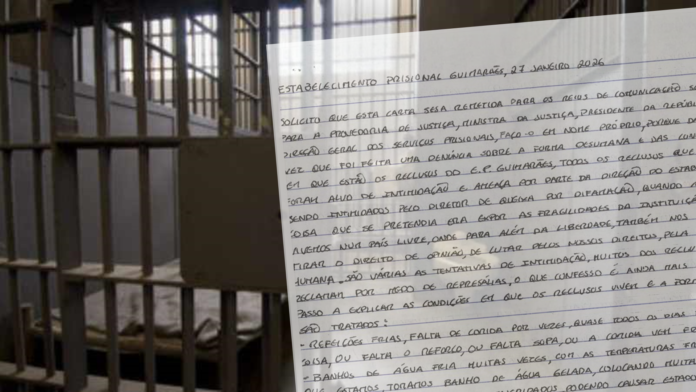 ESTABELECIMENTO PRISIONAL GUIMARÃES, 27 JANEIRO 2026
SOLICITO QUE ESTA CARTA SEJA REMETIDA PARA OS MEIOS DE COMUNICAÇÃO
PARA A PROVEDORIA DE JUSTIÇA, MINISTRA DA JUSTIÇA, PRESIDENTE DA
DIRECÇÃO GERAL DOS SERVIÇOS PRISIONAIS, FAÇO-O EM NOME PRÓPRIO, PORQUE DA
VEZ QUE FOI FEITA UMA DENÚNCIA SOBRE A FORMA DESUMANA E DAS
EM QUE ESTÃO OS RECLUSOS DO E.P. GUIMARÃES, TODOS OS RECLUSOS QUE
FORAM ALVO DE INTIMIDAÇÃO E AMEAÇA POR PARTE DA DIREÇÃO DO
SENDO INTIMIDADOS PELO DIRETOR DE QUEIXA POR DIFAMAÇÃO, QUANDO
COISA QUE SE PRETENDIA ERA EXPOR AS FRAGILIDADES DA
VIVEMOS NUM PAÍS LIVRE, ONDE PARA ALÉM DA LIBERDADE, TAMBÉM NOS
TIRAR O DIREITO DE OPINIÃO, DE LUTAR PELOS NOSSOS DIREITOS, PELA
HUMANA. SÃO VÁRIAS AS TENTATIVAS DE INTIMIDAÇÃO, MUITOS DOS
RECLAMAM POR MEDO DE REPRESÁLIAS, O QUE CONFESSO É AINDA MAIS
PASSO A EXPLICAR AS CONDIÇÕES EM QUE OS RECLUSOS VIVEM E A
SÃO TRATADOS:
- REFEIÇÕES FRIAS, FALTA DE COMIDA POR VEZES, QUASE TODOS OS DIAS
COISA, OU FALTA O REFORÇO, OU FALTA SOPA, OU A COMIDA VEM
- BANHOS DE ÁGUA FRIA MUITAS VEZES, COM AS TEMPERATURAS
QUE ESTAMOS, TOMAMOS BANHO DE ÁGUA GELADA, COLOCANDO
PODENDO CAUSAR